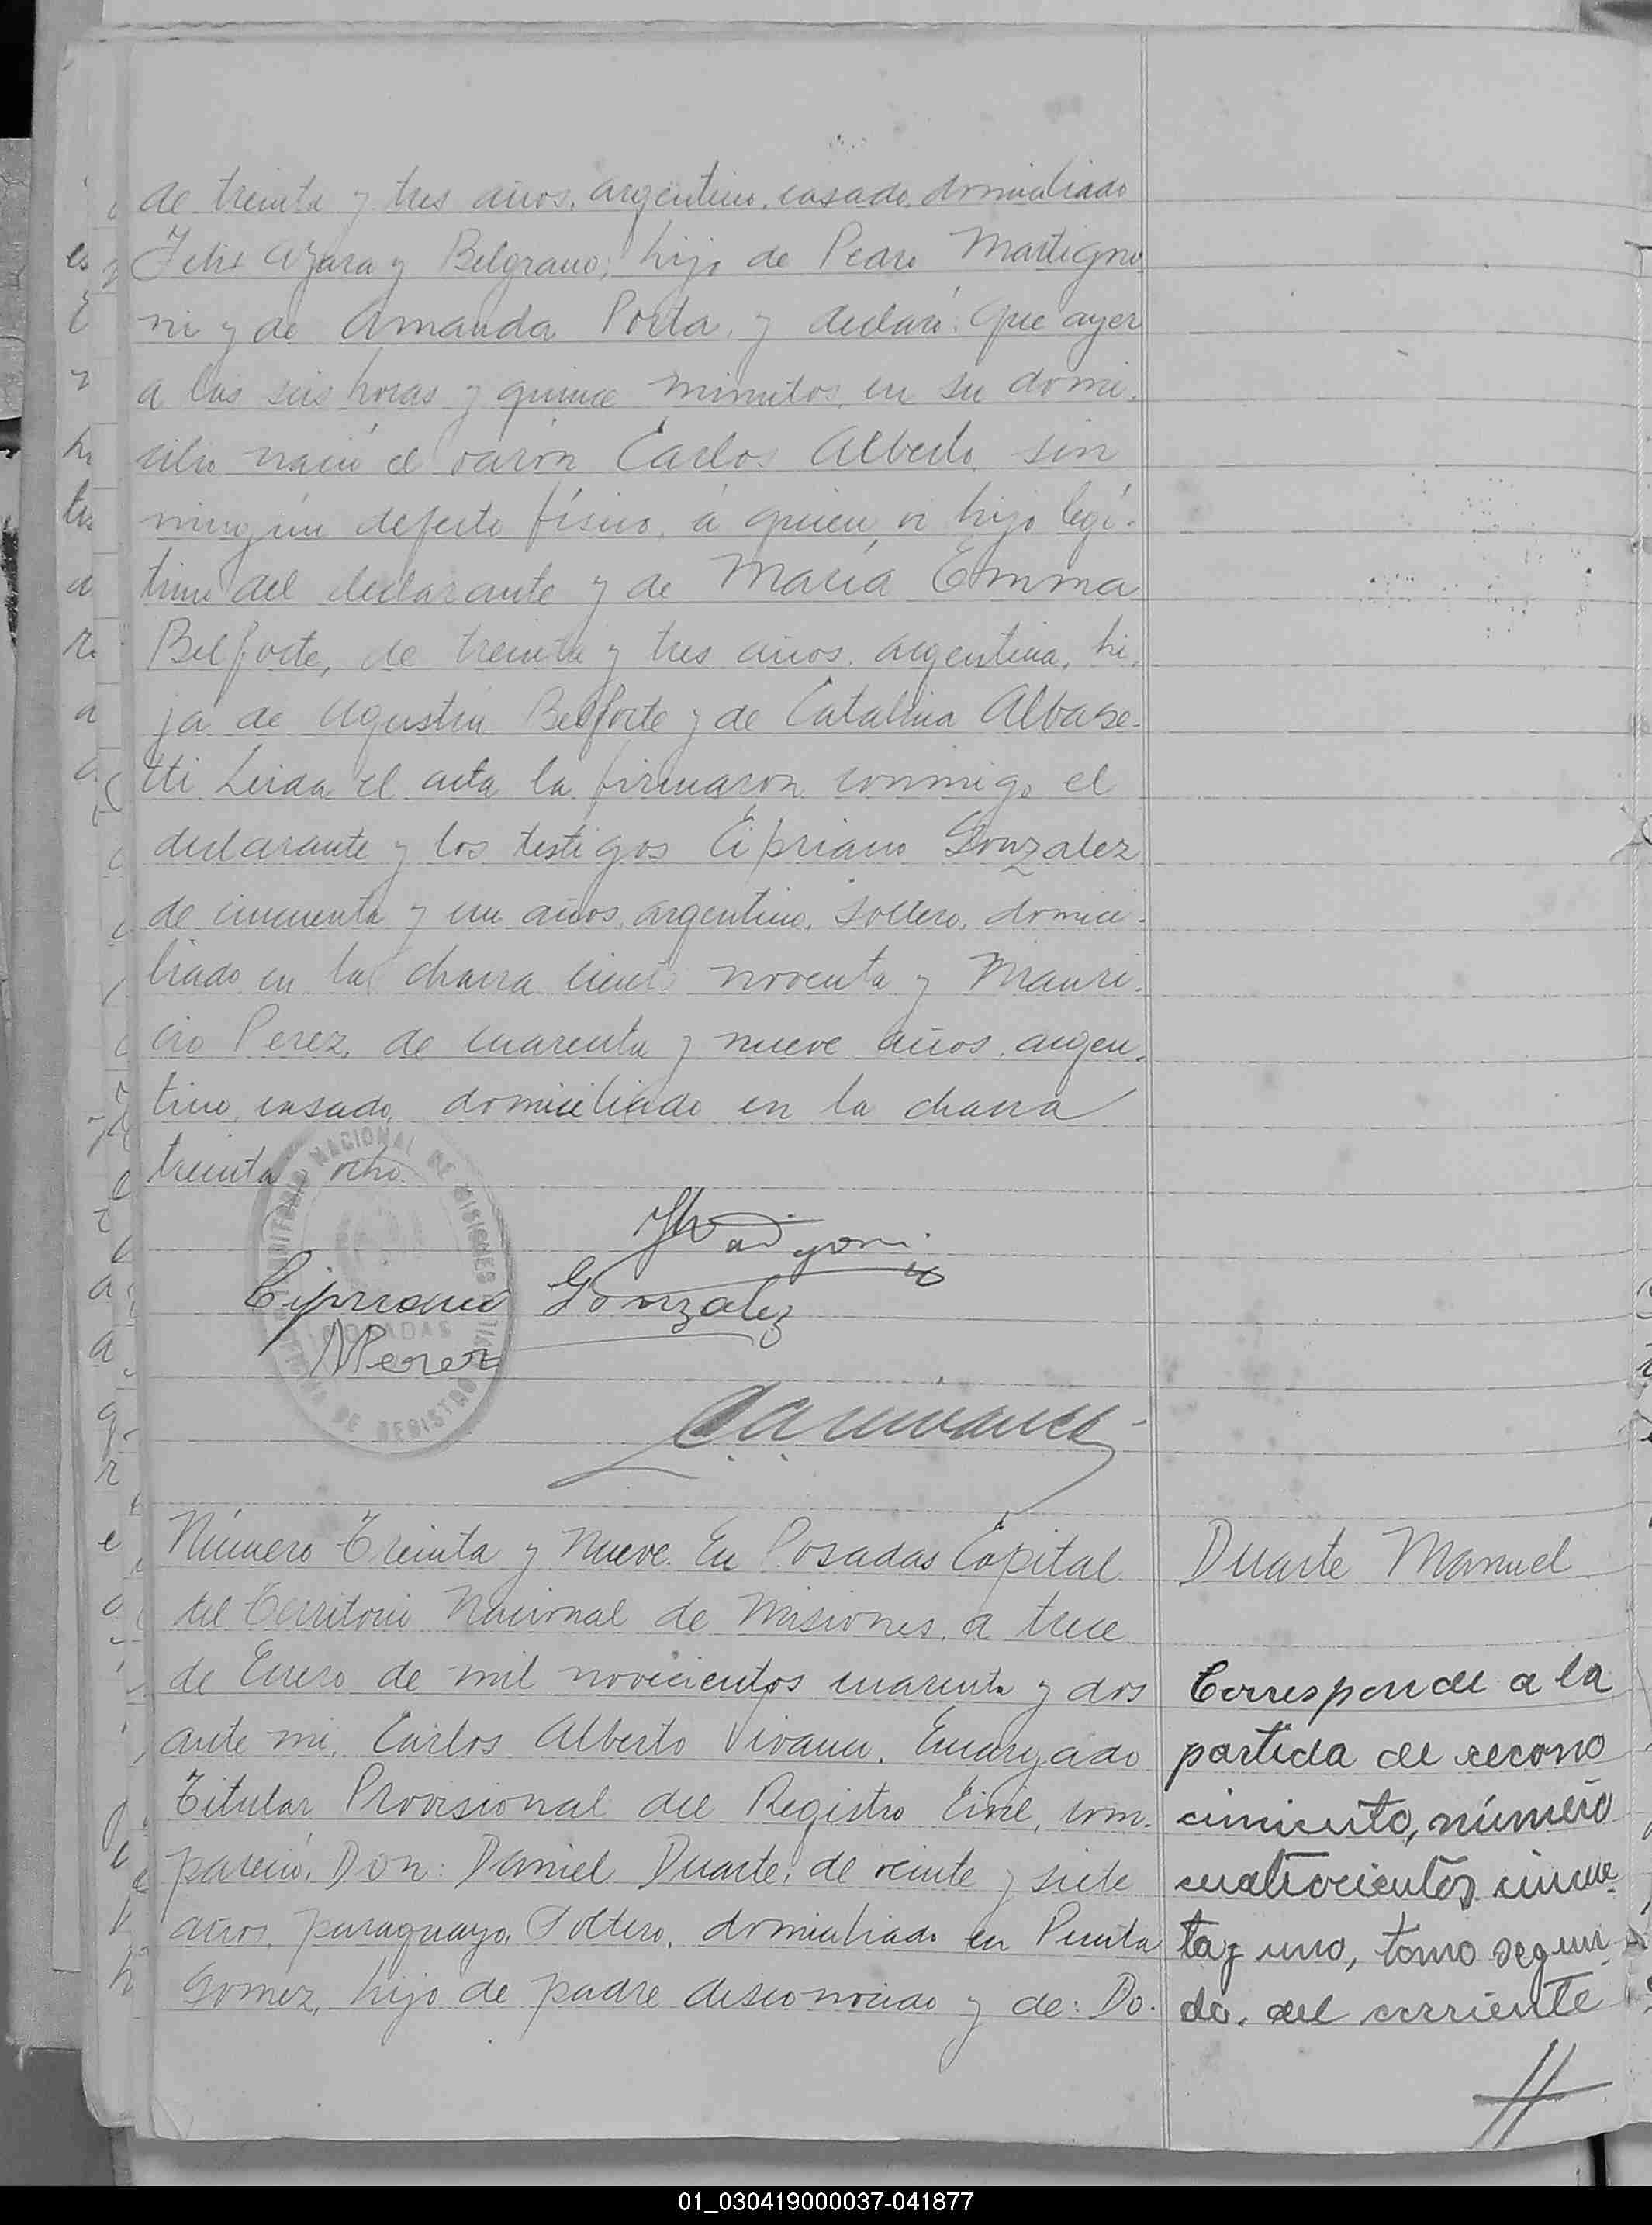 de treinta y tres años, argentino, casado, domiciliado
Felix Azara y Belgrano, hijo de Pedro Martigno
ni y de Amanda Porta, y declaró: Que ayer
a las seis horas y quince minutos, en su domi-
cilio nació el varón Carlos Alberto, sin
ningún defecto físico, á quien vi hijo legí-
timo del declarante y de María Emma
Belforte, de treinta y tres años, argentina, hi-
ja de Agustín Belforte y de Catalina Albase-
tti Leida el acta la firmaron conmigo el
declarante y los testigos Cipriano Gonzalez
de cincuenta y un años, argentino, soltero, domici-
liado en la chacra ciento noventa y Mauri-
cio Perez, de cuarenta y nueve años, argen-
tino, casado, domiciliado en la chacra
treinta y ocho.
TERRITORIO NACIONAL DE MISIONES
POSADAS
DE REGISTRO CIVIL
Cipriano Gonzalez
MPerez
Número Treinta y Nueve. En Posadas Capital
del Territorio Nacional de Misiones, a trece
de Enero de mil novecientos cuarenta y dos
ante mi, Carlos Alberto Vivanco, Encargado
Titular Provisional del Registro Civil, com-
pareció, Don: Daniel Duarte, de veinte y siete
años, paraguayo, Soltero, domiciliado en Punta
Gomez, hijo de padre desconocido y de: Do-
Duarte Manuel
Corresponde a la
partida de recono
cimiento, número
cuatrocientos cincuen-
ta y uno, tomo segun-
do, del corriente
01_030419000037-041877